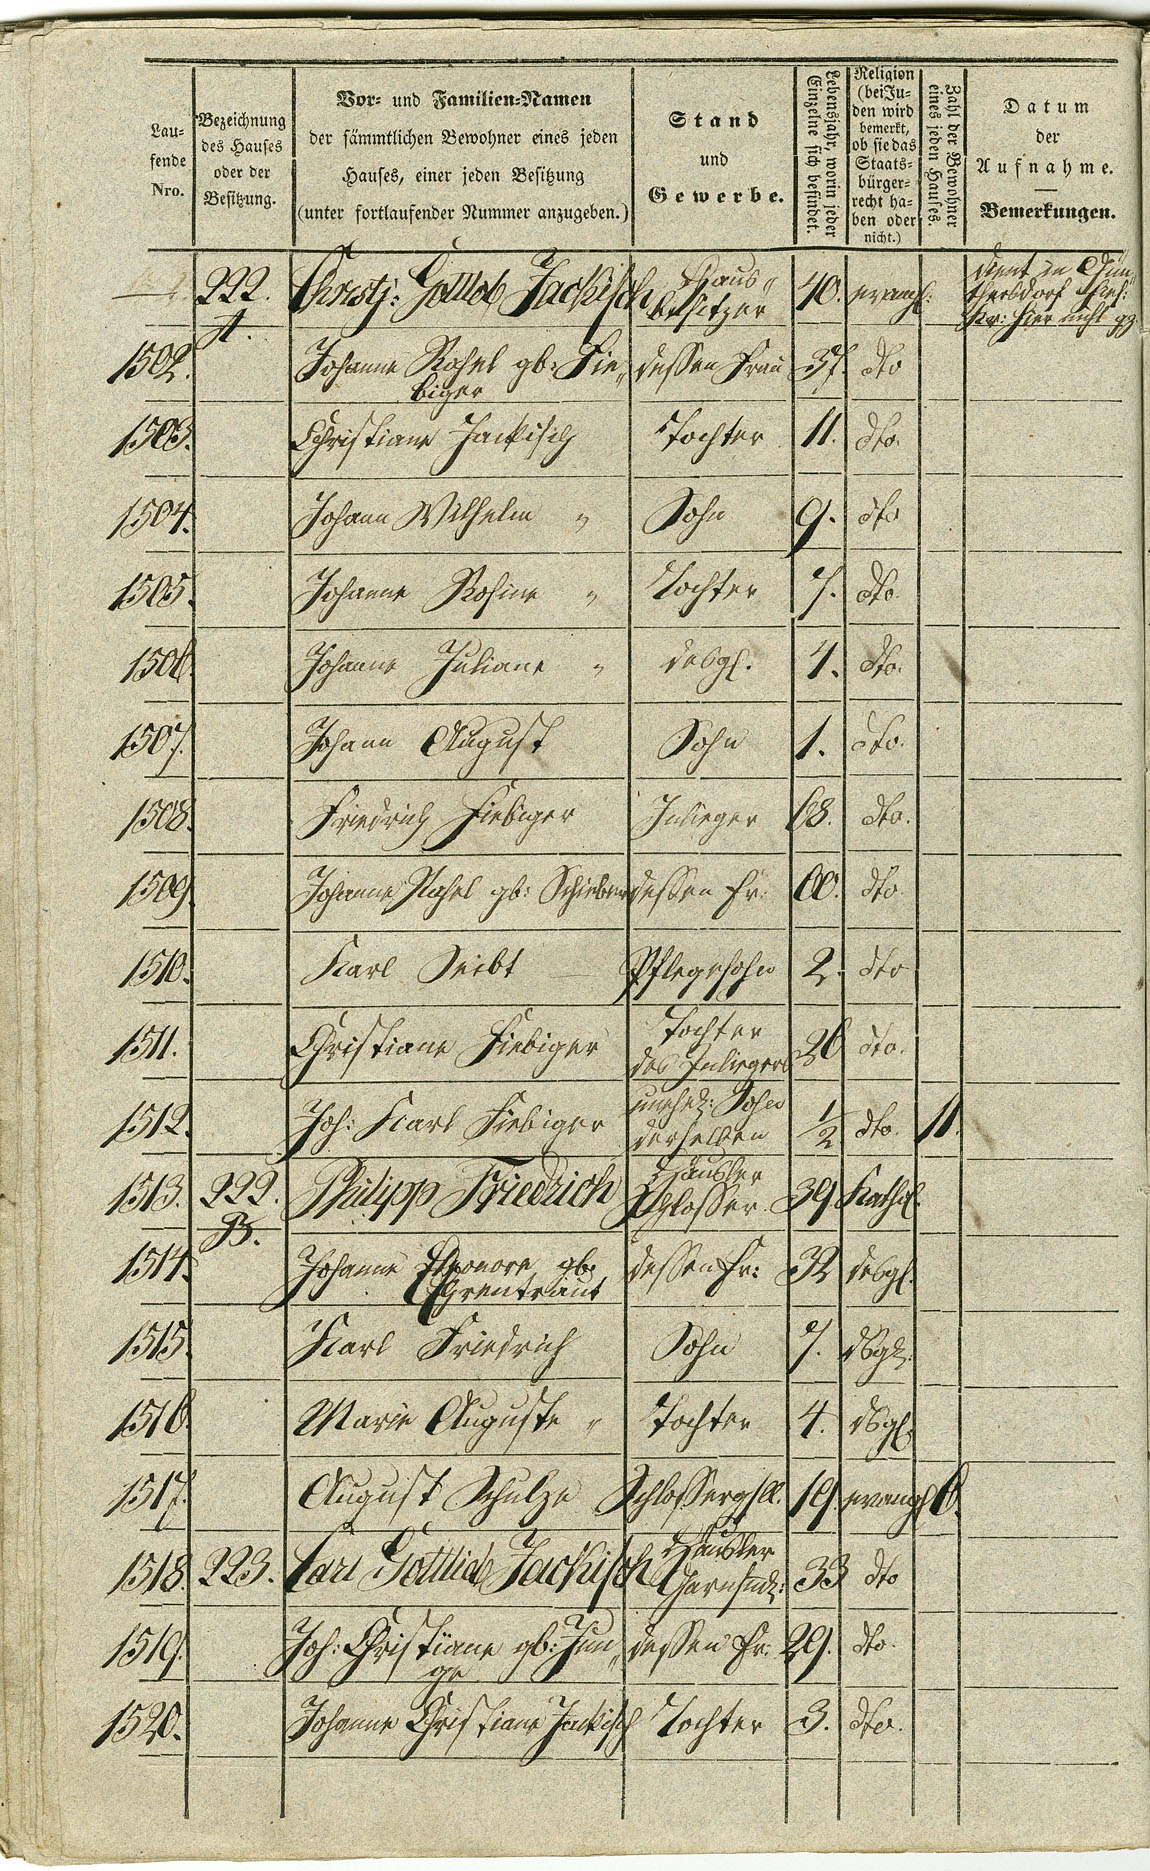 Laufende Nro.
Bezeichnung des Hauses oder der Besitzung.
Vor- und Familien-Namen
der sämmtlichen Bewohner eines jeden
Hauses, einer jeden Besitzung
(unter fortlaufender Nummer anzugeben.)
Stand
und
Gewerbe.
Lebensjahr, worin jeder Einzelne sich befindet.
Religion (bei Juden wird bemerkt, ob sie das Staatsbürgerrecht haben oder nicht.)
Zahl der Bewohner eines jeden Hauses.
Datum
der
Aufnahme.
Bemerkungen.
222. A. Christ: Gottlob Jackisch Haus„besitzer 40. evangl: dient in
1502. Johanne Rosel gb: Fie„biger dessen Frau 37. dto
1503. Christiane Jackisch Tochter 11. dto.
1504. Johann Wilhelm " Sohn 9. dto
1505. Johanne Rosine " Tochter 7. dto.
1506. Johanne Juliane " desgl. 4. dto.
1507. Johann August Sohn 1. dto.
1508. Friedrich Fiebiger Inlieger 68. dto.
1509. Johanne Rahel gb: dessen Fr: 60. dto
1510. Karl Seibt Pflegesohn 2. dto
1511. Christiane Fiebiger Tochter des Inliegers 26 dto.
1512. Joh: Karl Fiebiger unehel: Sohn derselben 1/2 dto. 11.
1513. 222. B. Philipp Friedrich Häusler Schlosser. 39. Kathol.
1514. Johanne Eleonore gb: Ehrentraut dessen Fr: 32 desgl.
1515. Karl Friedrich Sohn 7. dsgl.
1516 Marie Auguste " Tochter 4. dsgl.
1517. August Schulze Schlossergsll. 19 evangl 6.
1518. 223. Carl Gottlieb Jackisch Häusler 33 dto
1519. Joh: Christiane gb: Jun„ge dessen Fr. 29. dto.
1520. Johanne Christiane Jackisch Tochter 3. dto.